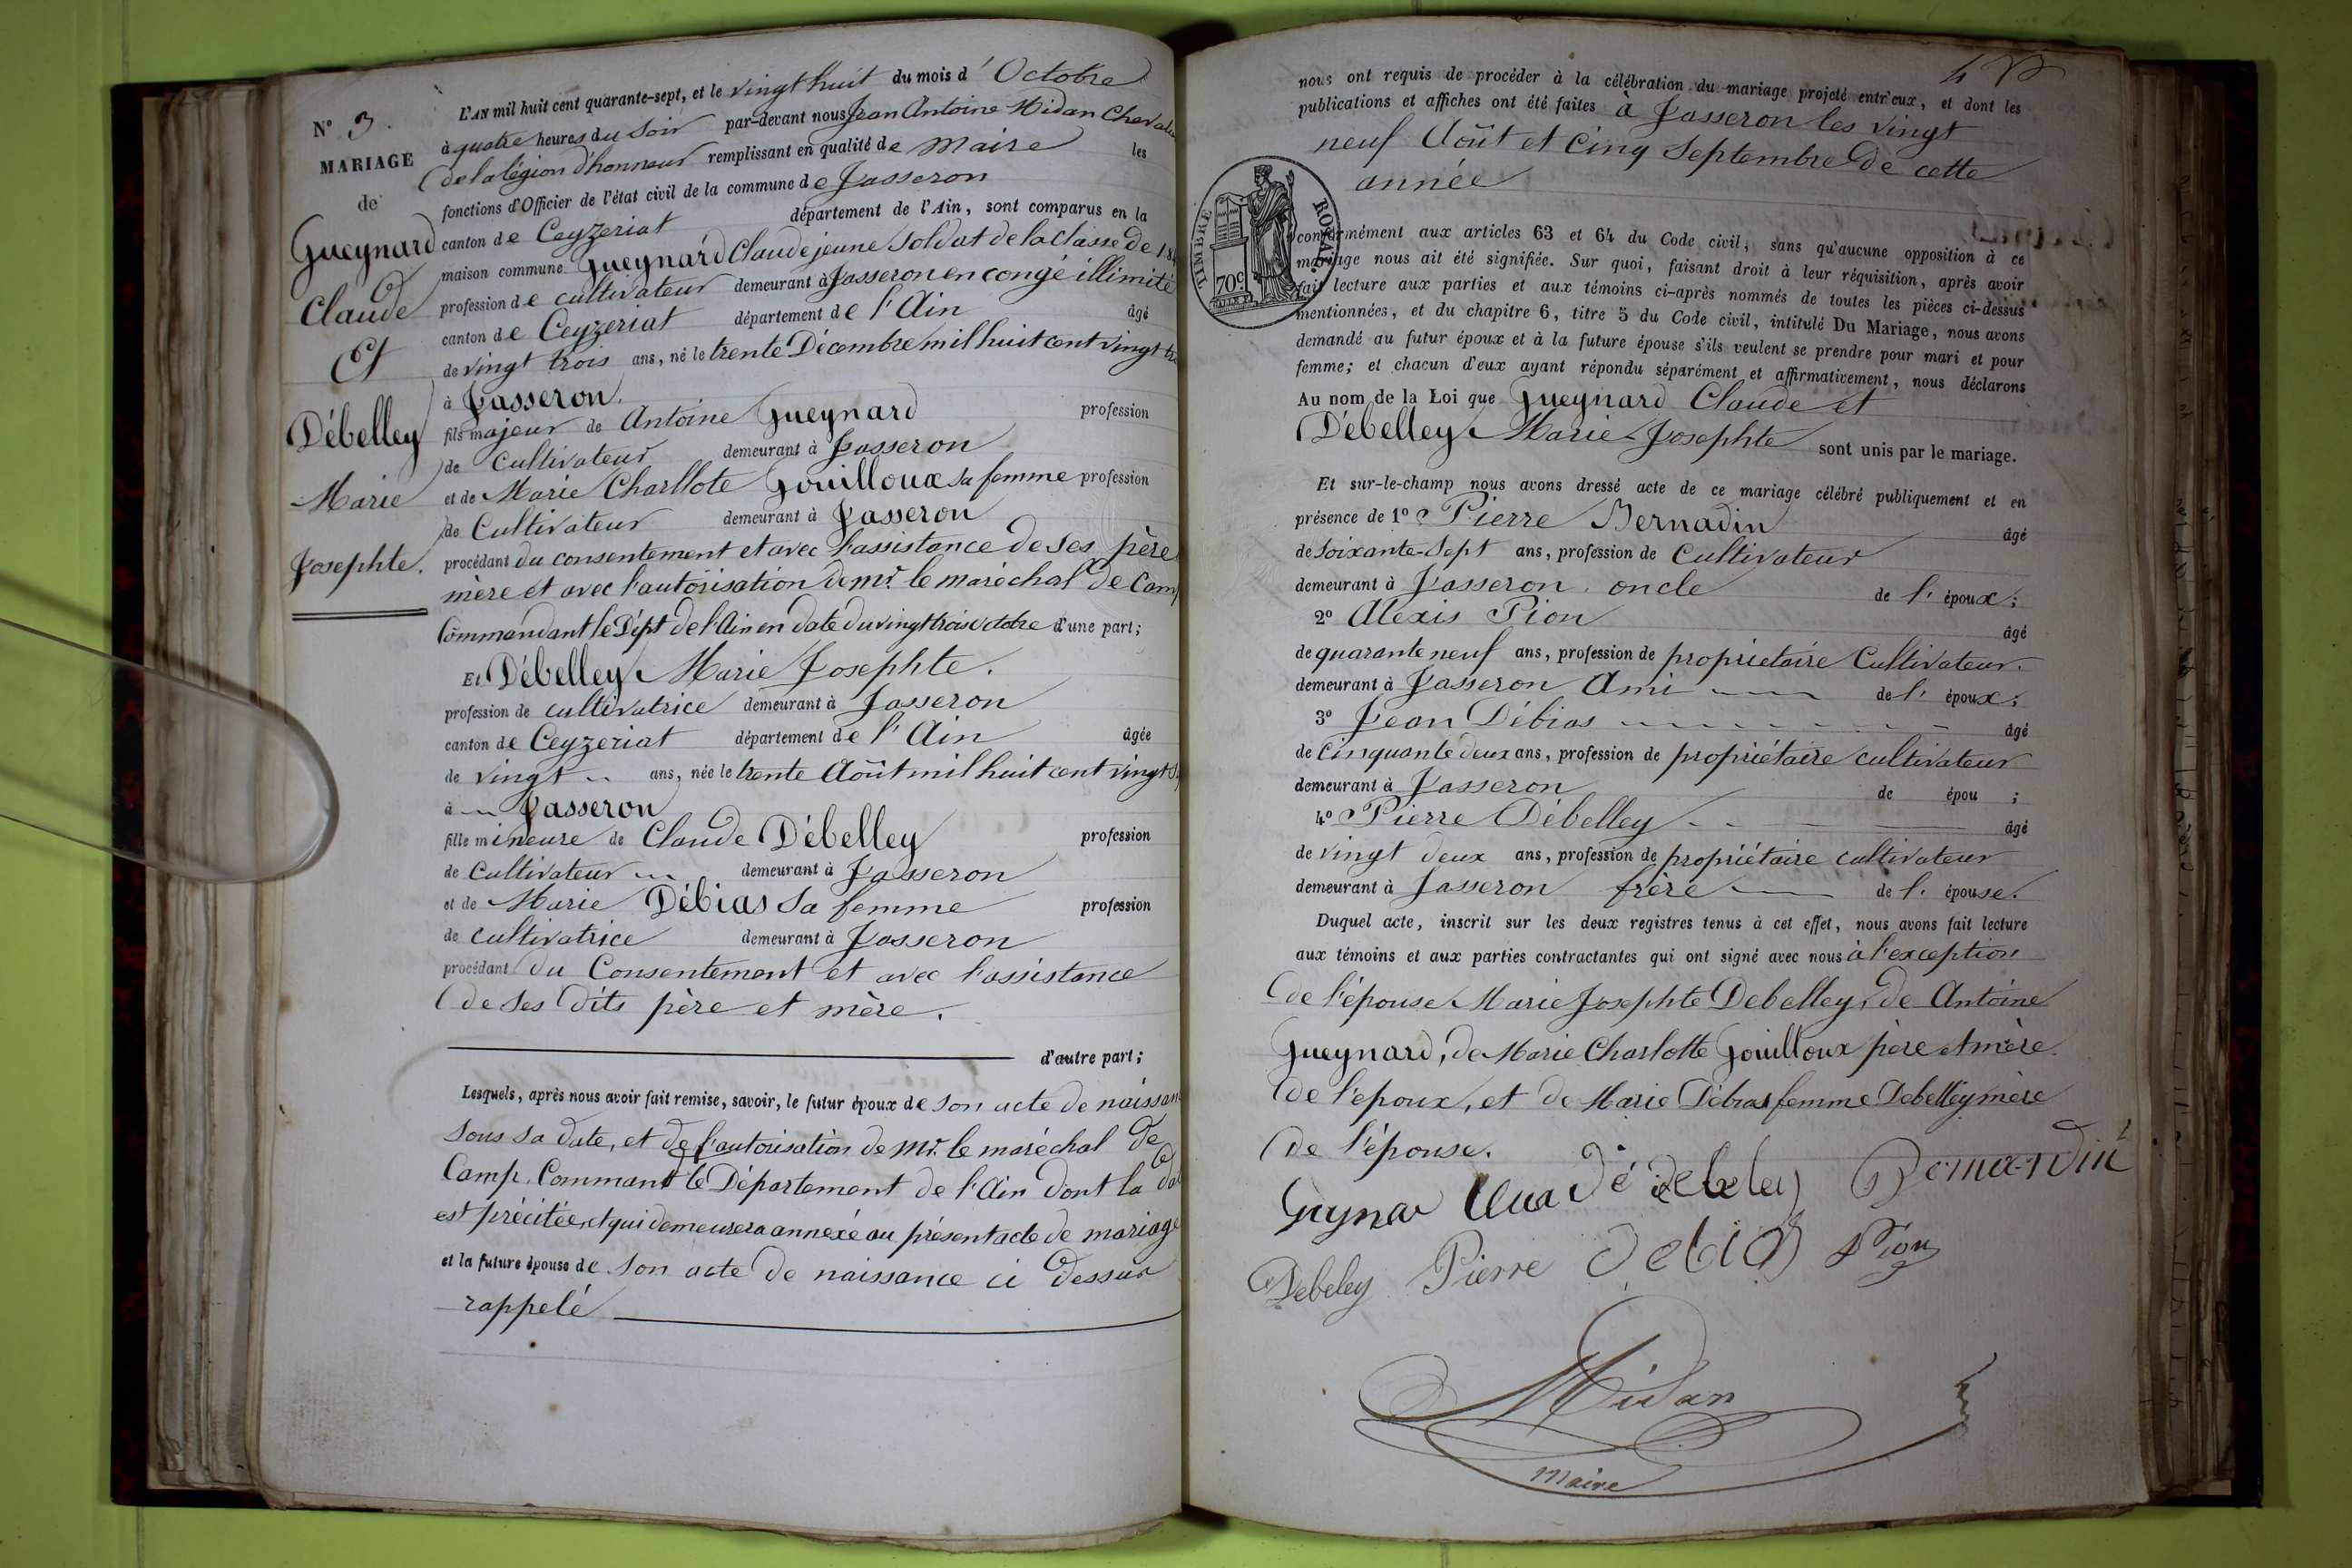 N° 3.
MARIAGE
de
Gueynard
Claude
Et
Débelley
Marie
Josephte.
L'AN mil huit cent quarante-sept, et le vingt huit du mois d'Octobre
à quatre heures du soir par-devant nous Jean Antoine Midan Cheval
de la légion d'honneur remplissant en qualité de Maire les
fonctions d'Officier de l'état civil de la commune de Jasseron
canton de Ceyzeriat département de l'Ain, sont comparus en la
maison commune Gueynard Claude jeune soldat de la Classe de 18
profession de cultivateur demeurant à Jasseron en congé illimité
canton de Ceyzeriat département de l'Ain âgé
de vingt trois ans, né le trente Décembre mil huit cent vingt
à Jasseron.
fils majeur de Antoine Gueynard profession
de Cultivateur demeurant à Jasseron
et de Marie Charllote Gouilloux sa femme profession
de Cultivateur demeurant à Jasseron
procédant du consentement et avec l'assistance de ses père
mère et avec l'autorisation de Mr. le maréchal de Camp
Commandant le Dépt de l'Ain en date du vingt trois octobre d'une part;
Et Débelley Marie Josephte.
profession de cultivatrice demeurant à Jasseron
canton de Ceyzeriat département de l'Ain âgée
de vingt ans, née le trente Août mil huit cent vingt
à Jasseron
fille mineure de Claude Débelley profession
de Cultivateur demeurant à Jasseron
et de Marie Débias sa femme profession
de cultivatrice demeurant à Jasseron
procédant du Consentement et avec l'assistance
de ses dits père et mère.
d'autre part;
Lesquels, après nous avoir fait remise, savoir, le futur époux de son acte de naissan
sous sa date, et de l'autorisation de Mr. le maréchal de
Camp. Commant le Département de l'Ain dont la da
est précitée, et qui demeurera annexé au présent acte de mariage
et la future épouse de son acte de naissance ci dessus
rappelé
4
nous ont requis de procéder à la célébration du mariage projeté entr'eux, et dont les
publications et affiches ont été faites à Jasseron les vingt
neuf Août et Cinq Septembre de cette
année
TIMBRE ROYAL
70c
conformément aux articles 63 et 64 du Code civil, sans qu'aucune opposition à ce
mariage nous ait été signifiée. Sur quoi, faisant droit à leur réquisition, après avoir
fait lecture aux parties et aux témoins ci-après nommés de toutes les pièces ci-dessus
mentionnées, et du chapitre 6, titre 5 du Code civil, intitulé Du Mariage, nous avons
demandé au futur époux et à la future épouse s'ils veulent se prendre pour mari et pour
femme; et chacun d'eux ayant répondu séparément et affirmativement, nous déclarons
Au nom de la Loi que Gueynard Claude et
Débelley Marie-Josephte sont unis par le mariage.
Et sur-le-champ nous avons dressé acte de ce mariage célébré publiquement et en
présence de 1° Pierre Bernadin âgé
de soixante-sept ans, profession de Cultivateur
demeurant à Jasseron. oncle de l'époux;
2° Alexis Pion âgé
de quarante neuf ans, profession de proprietaire Cultivateur.
demeurant à Jasseron Ami de l'époux;
3° Jean Débias âgé
de Cinquante deux ans, profession de propriétaire cultivateur
demeurant à Jasseron de épou ;
4° Pierre Débelley âgé
de vingt deux ans, profession de propriétaire cultivateur
demeurant à Jasseron frère de l'épouse.
Duquel acte, inscrit sur les deux registres tenus à cet effet, nous avons fait lecture
aux témoins et aux parties contractantes qui ont signé avec nous à l'exception
de l'épouse Marie Josephte Debelley, de Antoine
Gueynard, de Marie Charlotte Gouilloux père et mère
de l'époux, et de Marie Débias femme Debelley mère
de l'épouse.
Debeley Pierre debias Pion
Midan
Maire